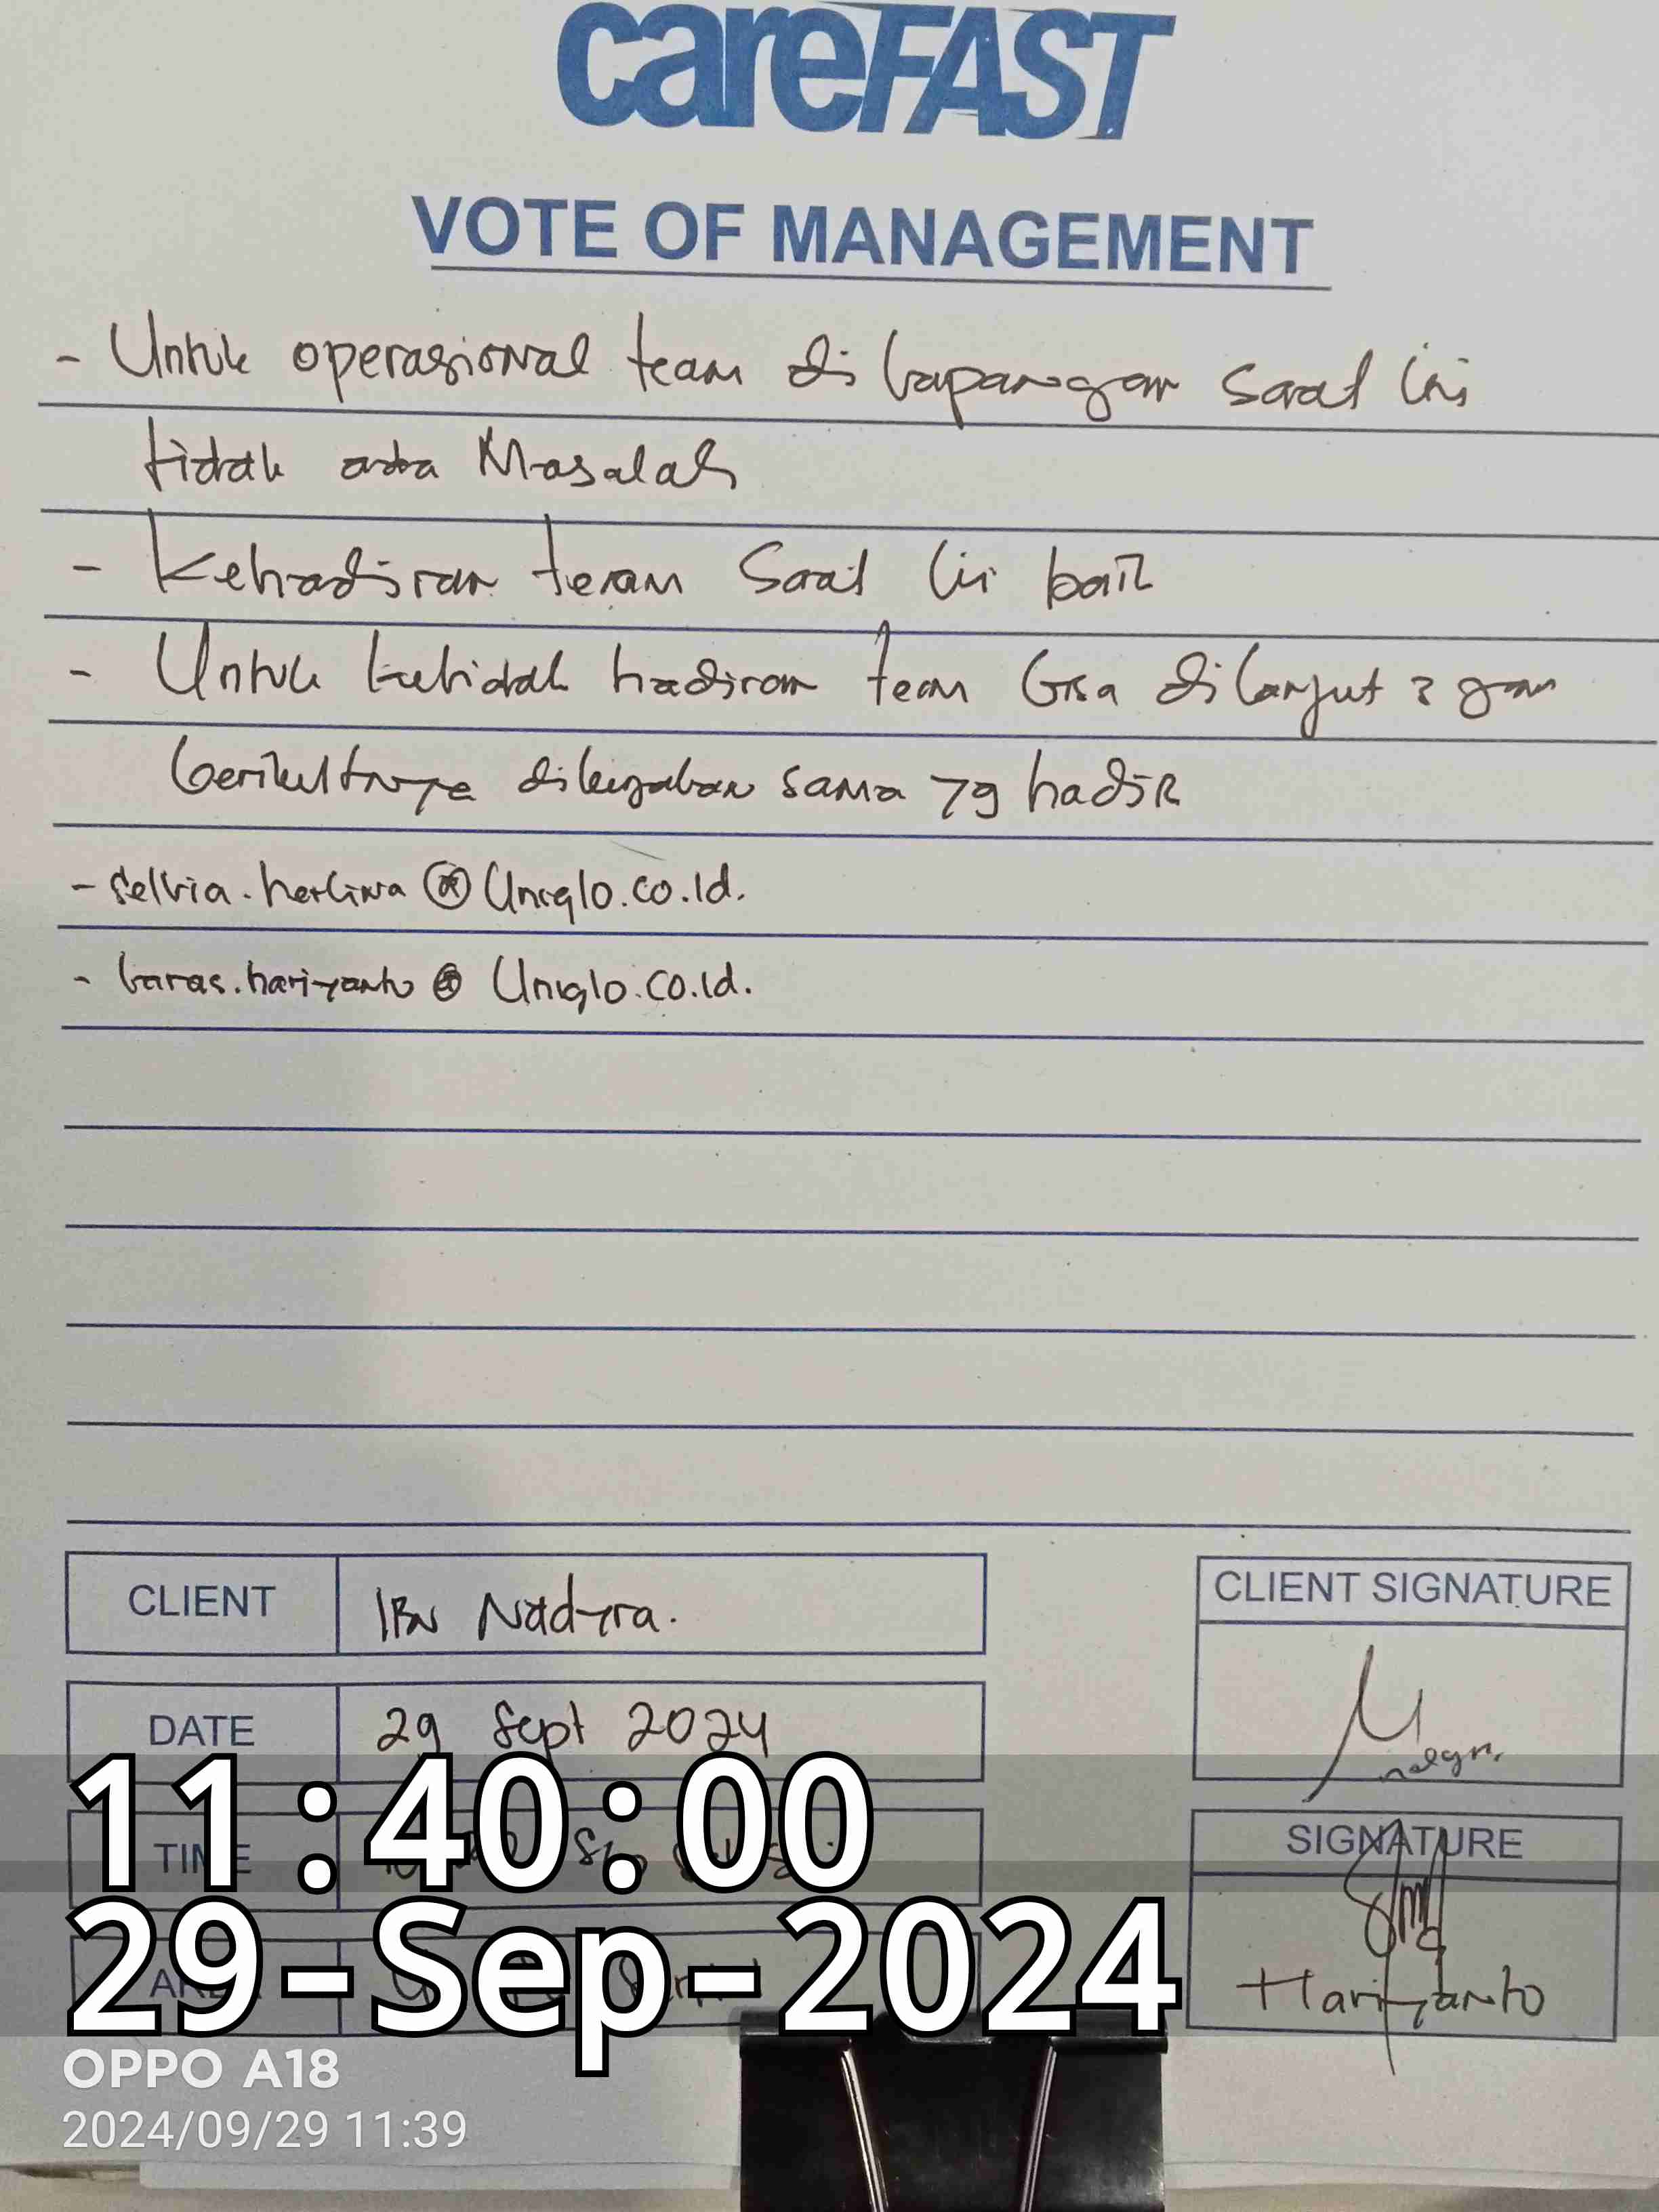 careFAST
VOTE OF MANAGEMENT
- Untuk operasional team di lapangan saat ini
tidak ada Masalah
- Kehadiran team Saat ini baik
- Untuk ketidak hadiran team bisa dilanjut 2 jam
berikutnya dikerjakan sama yg hadir
- selvia.herlina@Uniqlo.co.id.
- laras.hariyanto@Uniqlo.co.id.
CLIENT
IBU Nadyra.
CLIENT SIGNATURE
DATE
29 Sept 2024
11:40:00
TIME
SIGNATURE
29-Sep-2024
AREA
Hariyanto
OPPO A18
2024/09/29 11:39